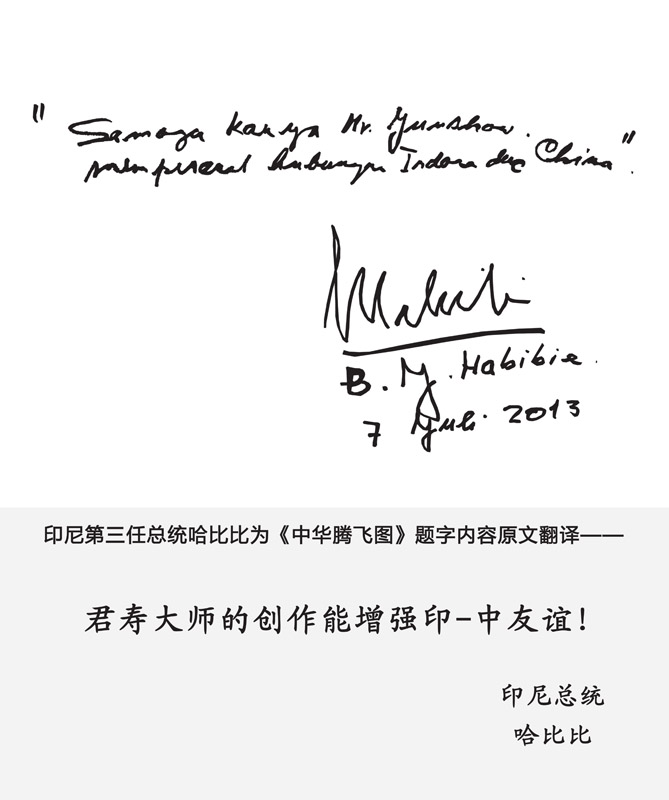 " Semoga karya Mr. Junshou.
mempererat hubungan Indon dng China ".
B. J. Habibie.
7 Juli 2013
印尼第三任总统哈比比为《中华腾飞图》题字内容原文翻译——
君寿大师的创作能增强印-中友谊!
印尼总统
哈比比